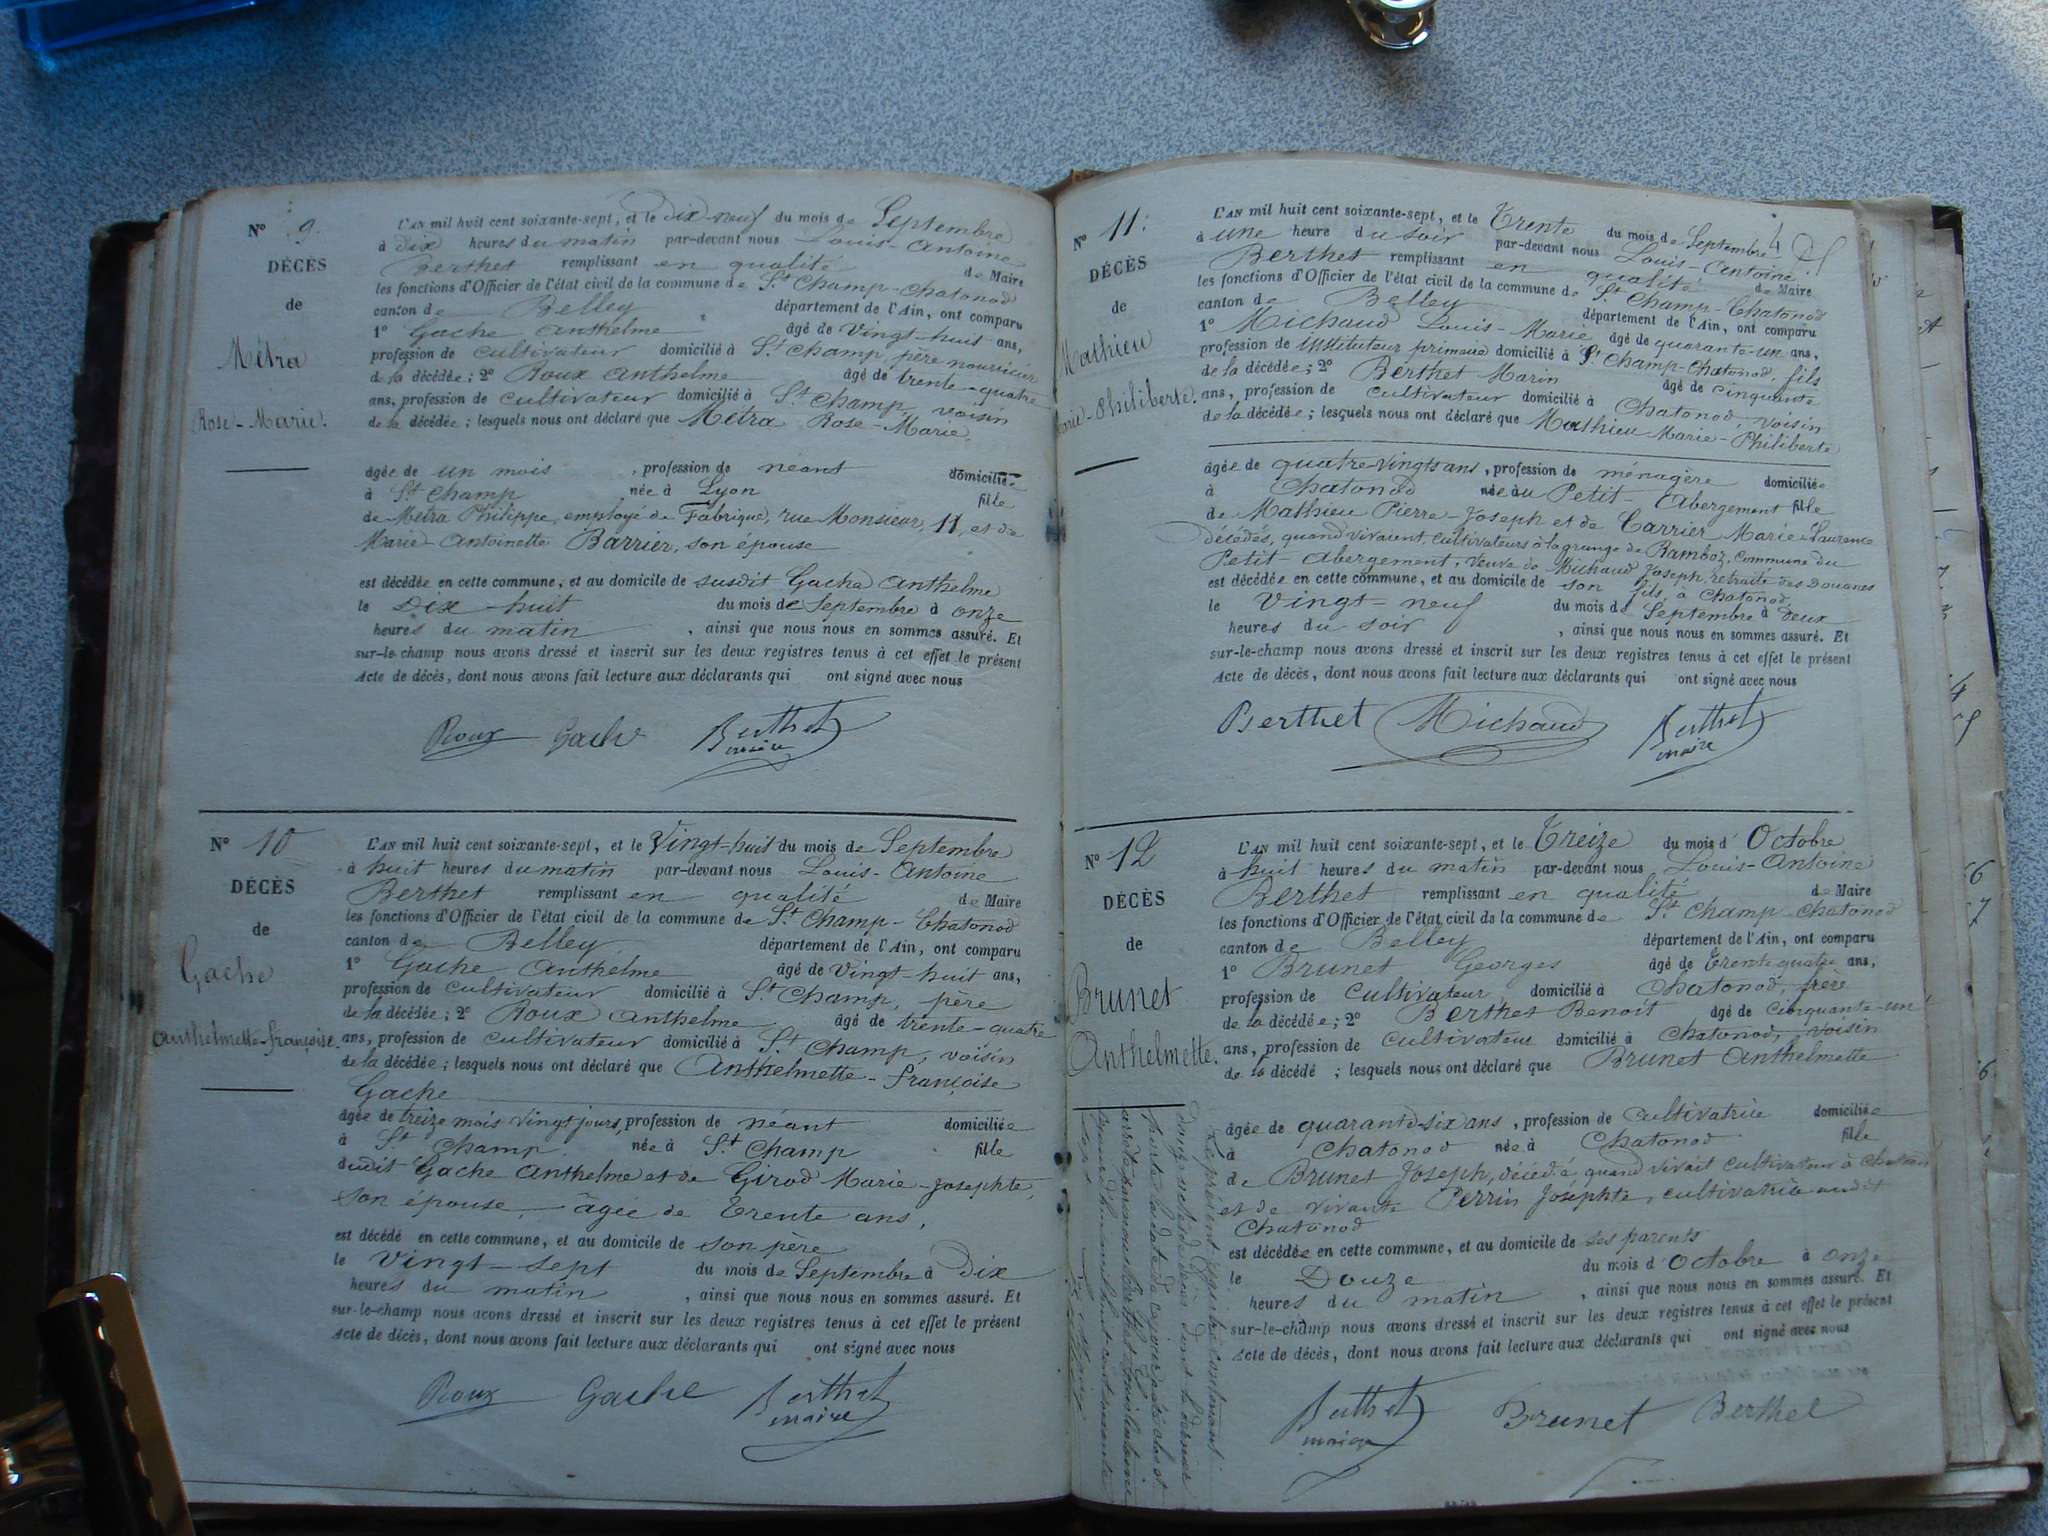 N° 9.
DÉCÈS
de
Métra
Rose-Marie.
L'AN mil huit cent soixante-sept, et le Dix-neuf du mois de Septembre
à dix heures du matin par-devant nous Louis-Antoine
Berthet remplissant en qualité de Maire
les fonctions d'Officier de l'état civil de la commune de St Champ-Chatonod
canton de Belley département de l'Ain, ont comparu
1° Gache Anthelme âgé de Vingt-huit ans,
profession de cultivateur domicilié à St Champ, père nourricier
de la décédée; 2° Roux Anthelme âgé de trente-quatre
ans, profession de cultivateur domicilié à St Champ, voisin
de la décédée; lesquels nous ont déclaré que Métra Rose-Marie,
âgée de un mois, profession de néant domiciliée
à St Champ née à Lyon fille
de Métra Philippe, employé de Fabrique, rue Monsieur, 11, et de
Marie-Antoinette Barrier, son épouse
est décédée en cette commune, et au domicile de susdit Gache Anthelme
le Dix-huit du mois de Septembre à onze
heures du matin, ainsi que nous nous en sommes assuré. Et
sur-le-champ nous avons dressé et inscrit sur les deux registres tenus à cet effet le présent
Acte de décès, dont nous avons fait lecture aux déclarants qui ont signé avec nous
Roux Gache Berthet
maire
N° 10
DÉCÈS
de
Gache
Anthelmette-françoise.
L'AN mil huit cent soixante-sept, et le Vingt-huit du mois de Septembre
à huit heures du matin par-devant nous Louis-Antoine
Berthet remplissant en qualité de Maire
les fonctions d'Officier de l'état civil de la commune de St Champ-Chatonod
canton de Belley département de l'Ain, ont comparu
1° Gache Anthelme âgé de vingt-huit ans,
profession de cultivateur domicilié à St Champ, père
de la décédée; 2° Roux Anthelme âgé de trente-quatre
ans, profession de cultivateur domicilié à St Champ, voisin
de la décédée; lesquels nous ont déclaré que Anthelmette-françoise
Gache
âgée de treize mois vingt jours, profession de néant domiciliée
à St Champ née à St Champ fille
dudit Gache Anthelme et de Girod Marie-Josephte,
son épouse, âgée de Trente ans,
est décédé en cette commune, et au domicile de son père
le Vingt-sept du mois de Septembre à Dix
heures du matin, ainsi que nous nous en sommes assuré. Et
sur-le-champ nous avons dressé et inscrit sur les deux registres tenus à cet effet le présent
Acte de décès, dont nous avons fait lecture aux déclarants qui ont signé avec nous
Roux Gache Berthet
maire
N° 11.
DÉCÈS
de
Mathieu
Marie-Philiberte.
L'AN mil huit cent soixante-sept, et le Trente du mois de Septembre
à une heure du soir par-devant nous Louis-Antoine
Berthet remplissant en qualité de Maire
les fonctions d'Officier de l'état civil de la commune de St Champ-Chatonod
canton de Belley département de l'Ain, ont comparu
1° Michaud Louis-Marie âgé de quarante-un ans,
profession de instituteur primaire domicilié à St Champ-Chatonod, fils
de la décédée; 2° Berthet Marin âgé de cinquante
ans, profession de cultivateur domicilié à Chatonod, voisin
de la décédée; lesquels nous ont déclaré que Mathieu Marie-Philiberte
âgée de quatre-vingts ans, profession de ménagère domiciliée
à Chatonod née au Petit-Abergement fille
de Mathieu Pierre-Joseph et de Carrier Marie-Laurence
décédés, quand vivaient, cultivateurs à la grange de Ramboz, Commune du
Petit-Abergement, Veuve de Michaud Joseph, retraité des Douanes
est décédée en cette commune, et au domicile de son fils, à Chatonod,
le Vingt-neuf du mois de Septembre à deux
heures du soir, ainsi que nous nous en sommes assuré. Et
sur-le-champ nous avons dressé et inscrit sur les deux registres tenus à cet effet le présent
Acte de décès, dont nous avons fait lecture aux déclarants qui ont signé avec nous
Berthet Michaud Berthet
maire
N° 12
DÉCÈS
de
Brunet
Anthelmette.
L'AN mil huit cent soixante-sept, et le Treize du mois d'Octobre
à huit heures du matin par-devant nous Louis-Antoine
Berthet remplissant en qualité de Maire
les fonctions d'Officier de l'état civil de la commune de St Champ-Chatonod
canton de Belley département de l'Ain, ont comparu
1° Brunet Georges âgé de trente quatre ans,
profession de cultivateur domicilié à Chatonod, frère
de la décédée; 2° Berthet Benoit âgé de Cinquante-un
ans, profession de cultivateur domicilié à Chatonod, voisin
de la décédé; lesquels nous ont déclaré que Brunet Anthelmette
âgée de quarante-six ans, profession de cultivatrice domiciliée
à Chatonod née à Chatonod fille
de Brunet Joseph, décédé, quand vivait cultivateur à Chatonod
et de vivante Perrin Joséphte, cultivatrice audit
Chatonod
est décédée en cette commune, et au domicile de ses parents
le Douze du mois d'Octobre à onze
heures du matin, ainsi que nous nous en sommes assuré. Et
sur-le-champ nous avons dressé et inscrit sur les deux registres tenus à cet effet le présent
Acte de décès, dont nous avons fait lecture aux déclarants qui ont signé avec nous
Berthet Brunet Berthet
maire
Le présent registre contenant